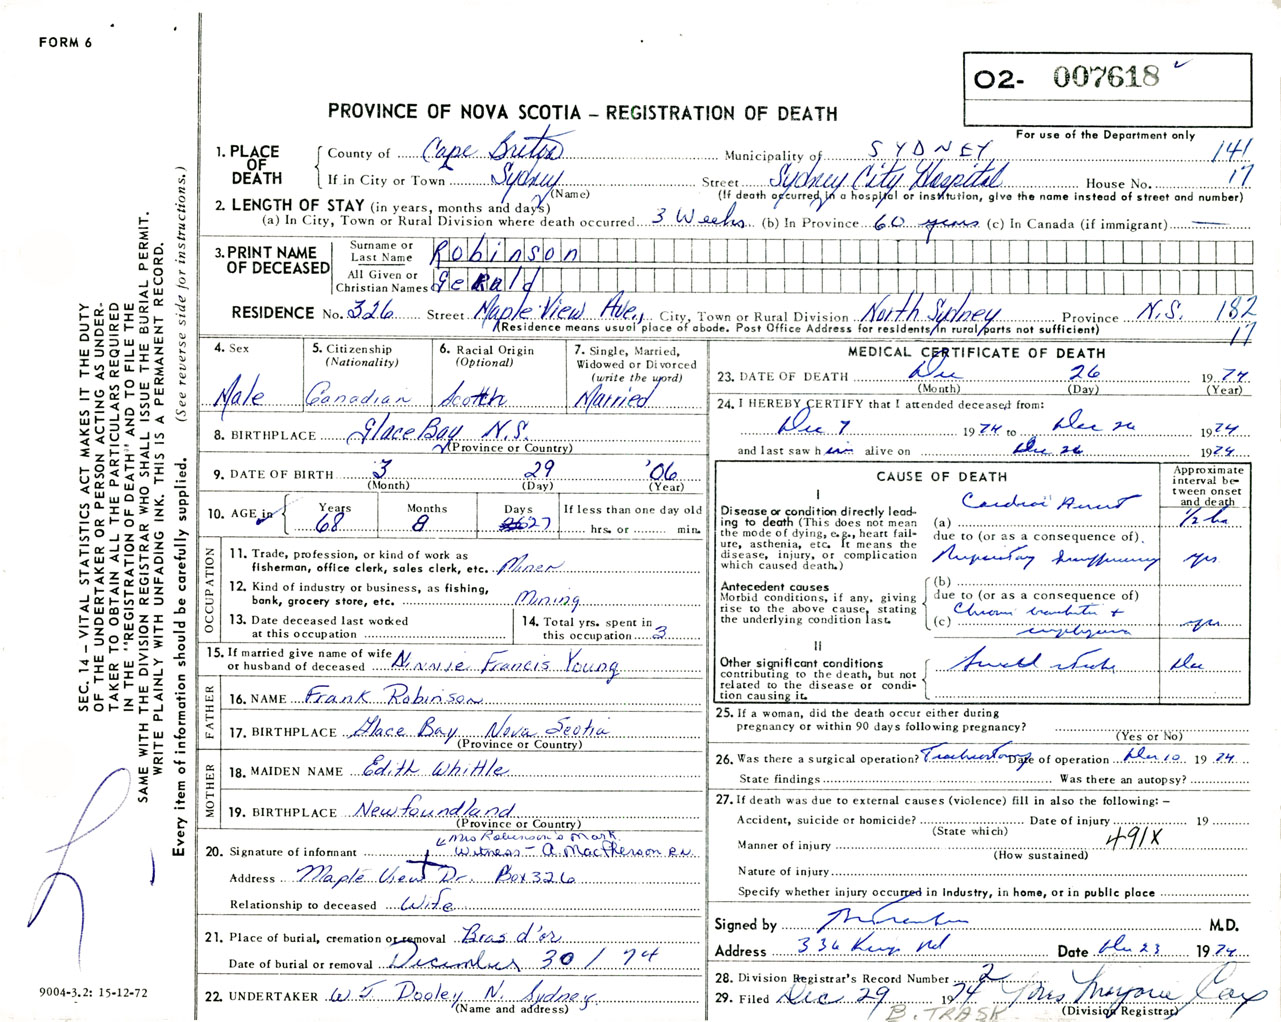 FORM 6
O2- 007618
For use of the Department only
PROVINCE OF NOVA SCOTIA – REGISTRATION OF DEATH
1. PLACE OF DEATH
County of Cape Breton Municipality of SYDNEY 141
If in City or Town Sydney (Name) Street Sydney City Hospital House No. 17
(If death occurred in a hospital or institution, give the name instead of street and number)
2. LENGTH OF STAY (in years, months and days)
(a) In City, Town or Rural Division where death occurred 3 Weeks (b) In Province 60 years (c) In Canada (if immigrant) —
3. PRINT NAME OF DECEASED
Surname or Last Name Robinson
All Given or Christian Names Gerald
RESIDENCE No. 326 Street Maple View Ave., City, Town or Rural Division North Sydney Province N.S. 182
(Residence means usual place of abode. Post Office Address for residents in rural parts not sufficient) 17
4. Sex Male
5. Citizenship (Nationality) Canadian
6. Racial Origin (Optional) Scotch
7. Single, Married, Widowed or Divorced (write the word) Married
8. BIRTHPLACE Glace Bay N.S.
(Province or Country)
9. DATE OF BIRTH 3 29 '06
(Month) (Day) (Year)
10. AGE in Years 68 Months 8 Days 27 If less than one day old hrs. or min.
OCCUPATION
11. Trade, profession, or kind of work as fisherman, office clerk, sales clerk, etc. Miner
12. Kind of industry or business, as fishing, bank, grocery store, etc. Mining
13. Date deceased last worked at this occupation
14. Total yrs. spent in this occupation 3
15. If married give name of wife or husband of deceased Ninnie Francis Young
FATHER
16. NAME Frank Robinson
17. BIRTHPLACE Glace Bay Nova Scotia
(Province or Country)
MOTHER
18. MAIDEN NAME Edith Whittle
19. BIRTHPLACE Newfoundland
(Province or Country)
Mrs Robinson's Mark
20. Signature of informant Witness - A MacPherson RN
Address Maple View Dr. Box 326
Relationship to deceased Wife
21. Place of burial, cremation or removal Bras d'or
Date of burial or removal December 30 / 74
22. UNDERTAKER W J Dooley N. Sydney
(Name and address)
MEDICAL CERTIFICATE OF DEATH
23. DATE OF DEATH Dec 26 1974
(Month) (Day) (Year)
24. I HEREBY CERTIFY that I attended deceased from:
Dec 7 1974 to Dec 26 1974
and last saw him alive on Dec 26 1974
CAUSE OF DEATH
Approximate interval between onset and death
I
Disease or condition directly leading to death (This does not mean the mode of dying, e.g., heart failure, asthenia, etc. It means the disease, injury, or complication which caused death.)
(a) Cardiac Arrest 1/2 hr
due to (or as a consequence of).
Respiratory Insufficiency yrs
Antecedent causes
Morbid conditions, if any, giving rise to the above cause, stating the underlying condition last.
(b)
due to (or as a consequence of)
(c) Chronic bronchitis + emphysema yrs
II
Other significant conditions contributing to the death, but not related to the disease or condition causing it.
25. If a woman, did the death occur either during pregnancy or within 90 days following pregnancy?
(Yes or No)
26. Was there a surgical operation? Tracheostomy Date of operation Dec 10 1974
State findings Was there an autopsy?
27. If death was due to external causes (violence) fill in also the following: –
Accident, suicide or homicide? Date of injury 19
(State which)
491X
Manner of injury
(How sustained)
Nature of injury
Specify whether injury occurred in industry, in home, or in public place
Signed by M.D.
Address 336 Kings Rd Date Dec 23 1974
28. Division Registrar's Record Number 2
29. Filed Dec 29 1974 Mrs Marjorie Cox
(Division Registrar)
B. TRASK
SEC. 14 – VITAL STATISTICS ACT MAKES IT THE DUTY
OF THE UNDERTAKER OR PERSON ACTING AS UNDER-
TAKER TO OBTAIN ALL THE PARTICULARS REQUIRED
IN THE "REGISTRATION OF DEATH" AND TO FILE THE
SAME WITH THE DIVISION REGISTRAR WHO SHALL ISSUE THE BURIAL PERMIT.
WRITE PLAINLY WITH UNFADING INK. THIS IS A PERMANENT RECORD.
Every item of information should be carefully supplied. (See reverse side for instructions.)
9004-3.2: 15-12-72